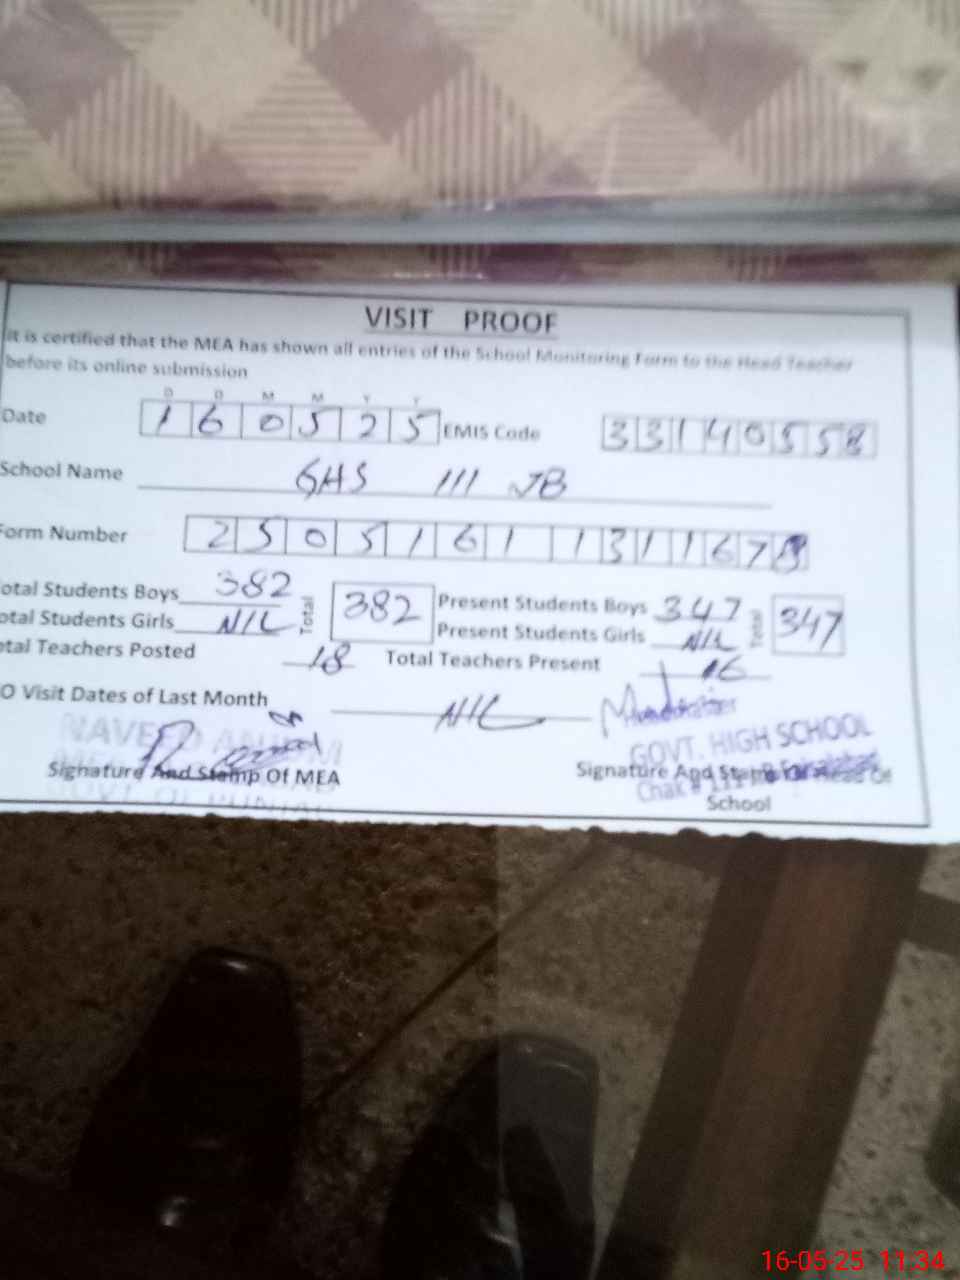 VISIT PROOF
It is certified that the MEA has shown all entries of the School Monitoring Form to the Head Teacher
before its online submission
D D M M Y Y
Date 1 6 0 5 2 5 EMIS Code 3 3 1 4 0 5 5 8
School Name GHS 111 JB
Form Number 2 5 0 5 1 6 1 1 3 1 1 6 7
otal Students Boys 382 Total 382 Present Students Boys 347 Total 347
otal Students Girls NIL Present Students Girls NIL
otal Teachers Posted 18 Total Teachers Present 16
O Visit Dates of Last Month NIL
NAVEED
GOVT. HIGH SCHOOL
Signature And Stamp Of MEA Signature And Stamp Of Head Of
Chak # 111 JB Faisalabad
School
GOVT OF PUNJAB
16-05-25 11:34